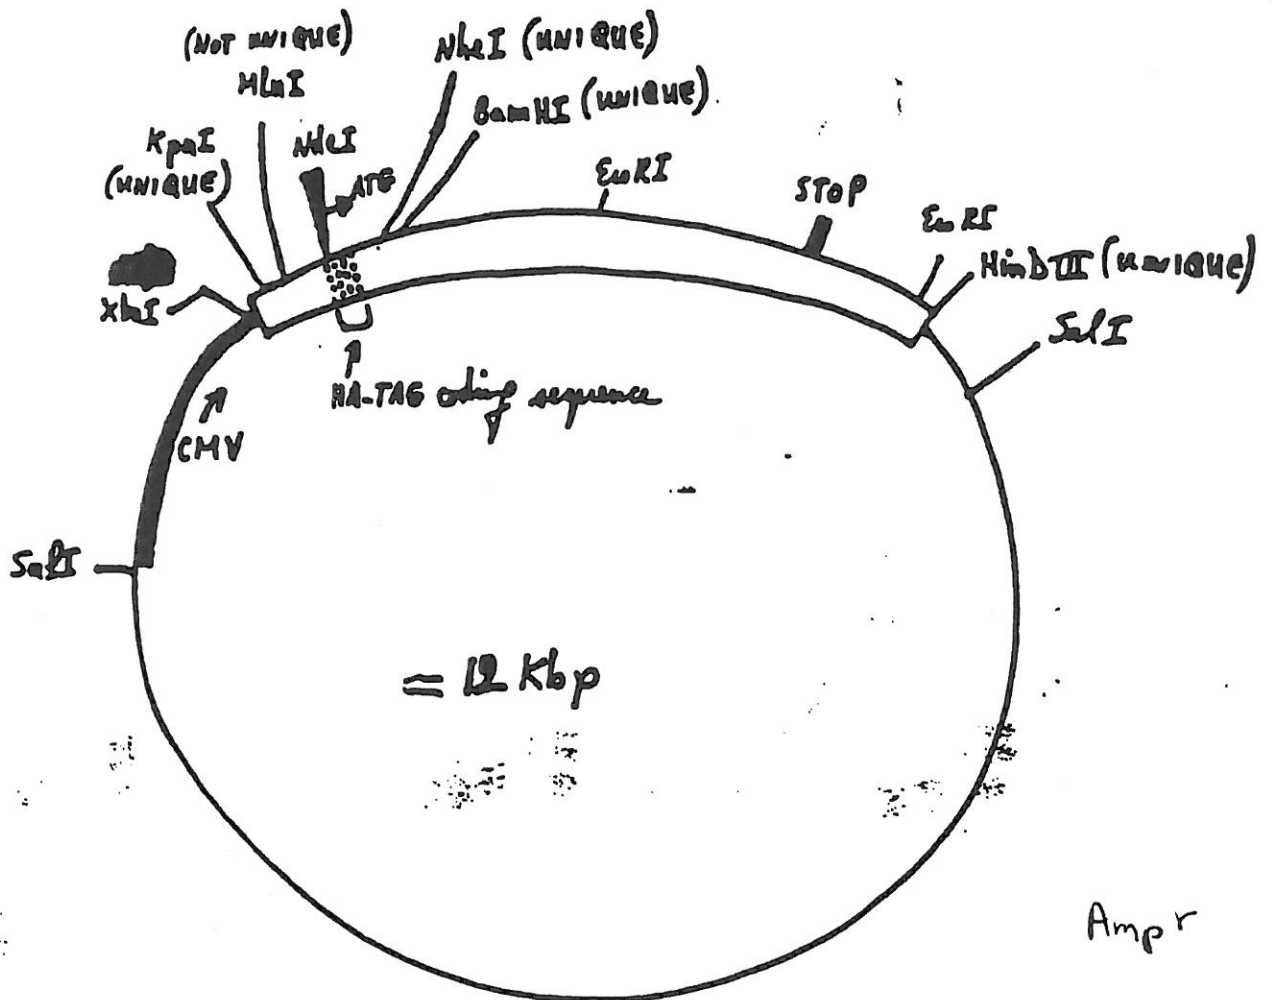 (NOT UNIQUE)
MluI
NheI (UNIQUE)
BamHI (UNIQUE)
KpnI
(UNIQUE)
NdeI
ATG
EcoRI
STOP
EcoRI
HinDIII (UNIQUE)
XbaI
SalI
HA-TAG coding sequence
CMV
SalI
= 12 Kbp
Amp r